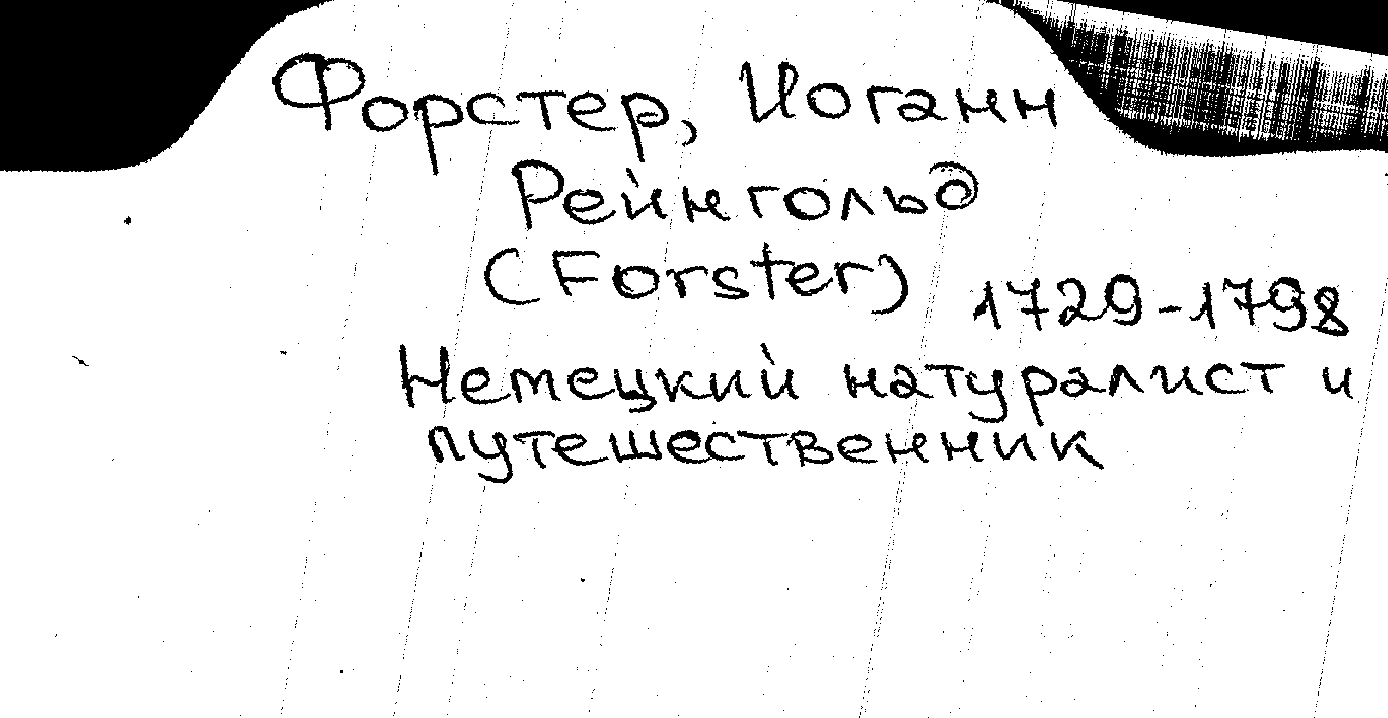 Форстер, Иоганн
Рейнгольд
(Forster) 1729-1798
Немецкий натуралист и
путешественник